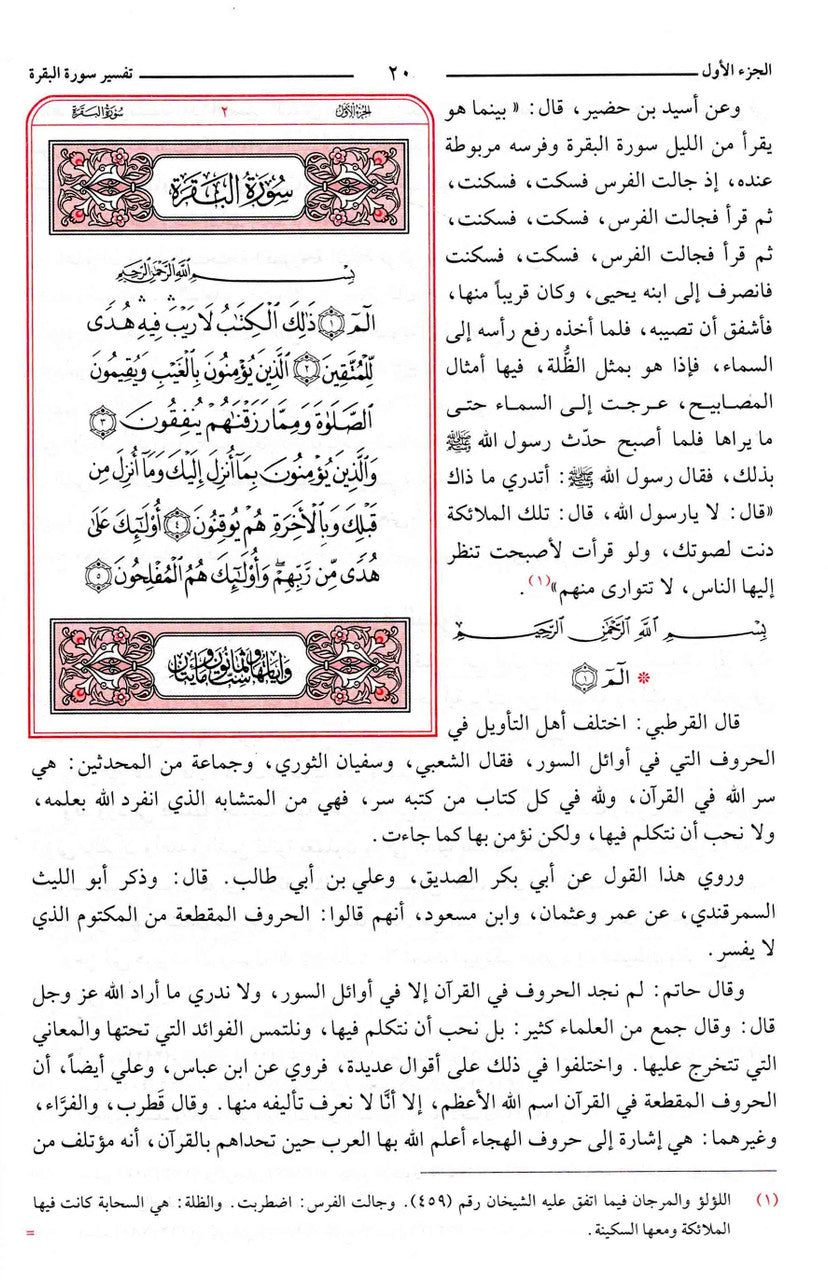 الجزء الأول ٢٠ تفسير سورة البقرة
وعن أسيد بن حضير، قال: «بينما هو
يقرأ من الليل سورة البقرة وفرسه مربوطة
عنده، إذ جالت الفرس فسكت، فسكنت،
ثم قرأ فجالت الفرس، فسكت، فسكنت،
ثم قرأ فجالت الفرس، فسكت، فسكنت
فانصرف إلى ابنه يحيى، وكان قريباً منها،
فأشفق أن تصيبه، فلما أخذه رفع رأسه إلى
السماء، فإذا هو بمثل الظُّلة، فيها أمثال
المصابيح، عرجت إلى السماء حتى
ما يراها فلما أصبح حدّث رسول الله ﷺ
بذلك، فقال رسول الله ﷺ: أتدري ما ذاك
«قال: لا يارسول الله، قال: تلك الملائكة
دنت لصوتك، ولو قرأت لأصبحت تنظر
إليها الناس، لا تتوارى منهم»(١).
بِسْمِ اللَّهِ الرَّحْمَٰنِ الرَّحِيمِ
* الٓمٓ ١
الجزء الأول ٢ سورة البقرة
سُورَةُ الْبَقَرَةِ
بِسْمِ اللَّهِ الرَّحْمَٰنِ الرَّحِيمِ
الٓمٓ ١ ذَٰلِكَ ٱلْكِتَٰبُ لَا رَيْبَ ۛ فِيهِ ۛ هُدًى
لِّلْمُتَّقِينَ ٢ ٱلَّذِينَ يُؤْمِنُونَ بِٱلْغَيْبِ وَيُقِيمُونَ
ٱلصَّلَوٰةَ وَمِمَّا رَزَقْنَٰهُمْ يُنفِقُونَ ٣
وَٱلَّذِينَ يُؤْمِنُونَ بِمَآ أُنزِلَ إِلَيْكَ وَمَآ أُنزِلَ مِن
قَبْلِكَ وَبِٱلْأَخِرَةِ هُمْ يُوقِنُونَ ٤ أُو۟لَٰٓئِكَ عَلَىٰ
هُدًى مِّن رَّبِّهِمْ ۖ وَأُو۟لَٰٓئِكَ هُمُ ٱلْمُفْلِحُونَ ٥
وآياتها ست وثمانون ومايتان
قال القرطبي: اختلف أهل التأويل في
الحروف التي في أوائل السور، فقال الشعبي، وسفيان الثوري، وجماعة من المحدثين: هي
سر الله في القرآن، ولله في كل كتاب من كتبه سر، فهي من المتشابه الذي انفرد الله بعلمه،
ولا نحب أن نتكلم فيها، ولكن نؤمن بها كما جاءت.
وروي هذا القول عن أبي بكر الصديق، وعلي بن أبي طالب. قال: وذكر أبو الليث
السمرقندي، عن عمر وعثمان، وابن مسعود، أنهم قالوا: الحروف المقطعة من المكتوم الذي
لا يفسر.
وقال حاتم: لم نجد الحروف في القرآن إلا في أوائل السور، ولا ندري ما أراد الله عز وجل
قال: وقال جمع من العلماء كثير: بل نحب أن نتكلم فيها، ونلتمس الفوائد التي تحتها والمعاني
التي تتخرج عليها. واختلفوا في ذلك على أقوال عديدة، فروي عن ابن عباس، وعلي أيضاً، أن
الحروف المقطعة في القرآن اسم الله الأعظم، إلا أنَّا لا نعرف تأليفه منها. وقال قَطرب، والفرَّاء،
وغيرهما: هي إشارة إلى حروف الهجاء أعلم الله بها العرب حين تحداهم بالقرآن، أنه مؤتلف من
(١) اللؤلؤ والمرجان فيما اتفق عليه الشيخان رقم (٤٥٩). وجالت الفرس: اضطربت. والظلة: هي السحابة كانت فيها
الملائكة ومعها السكينة. =